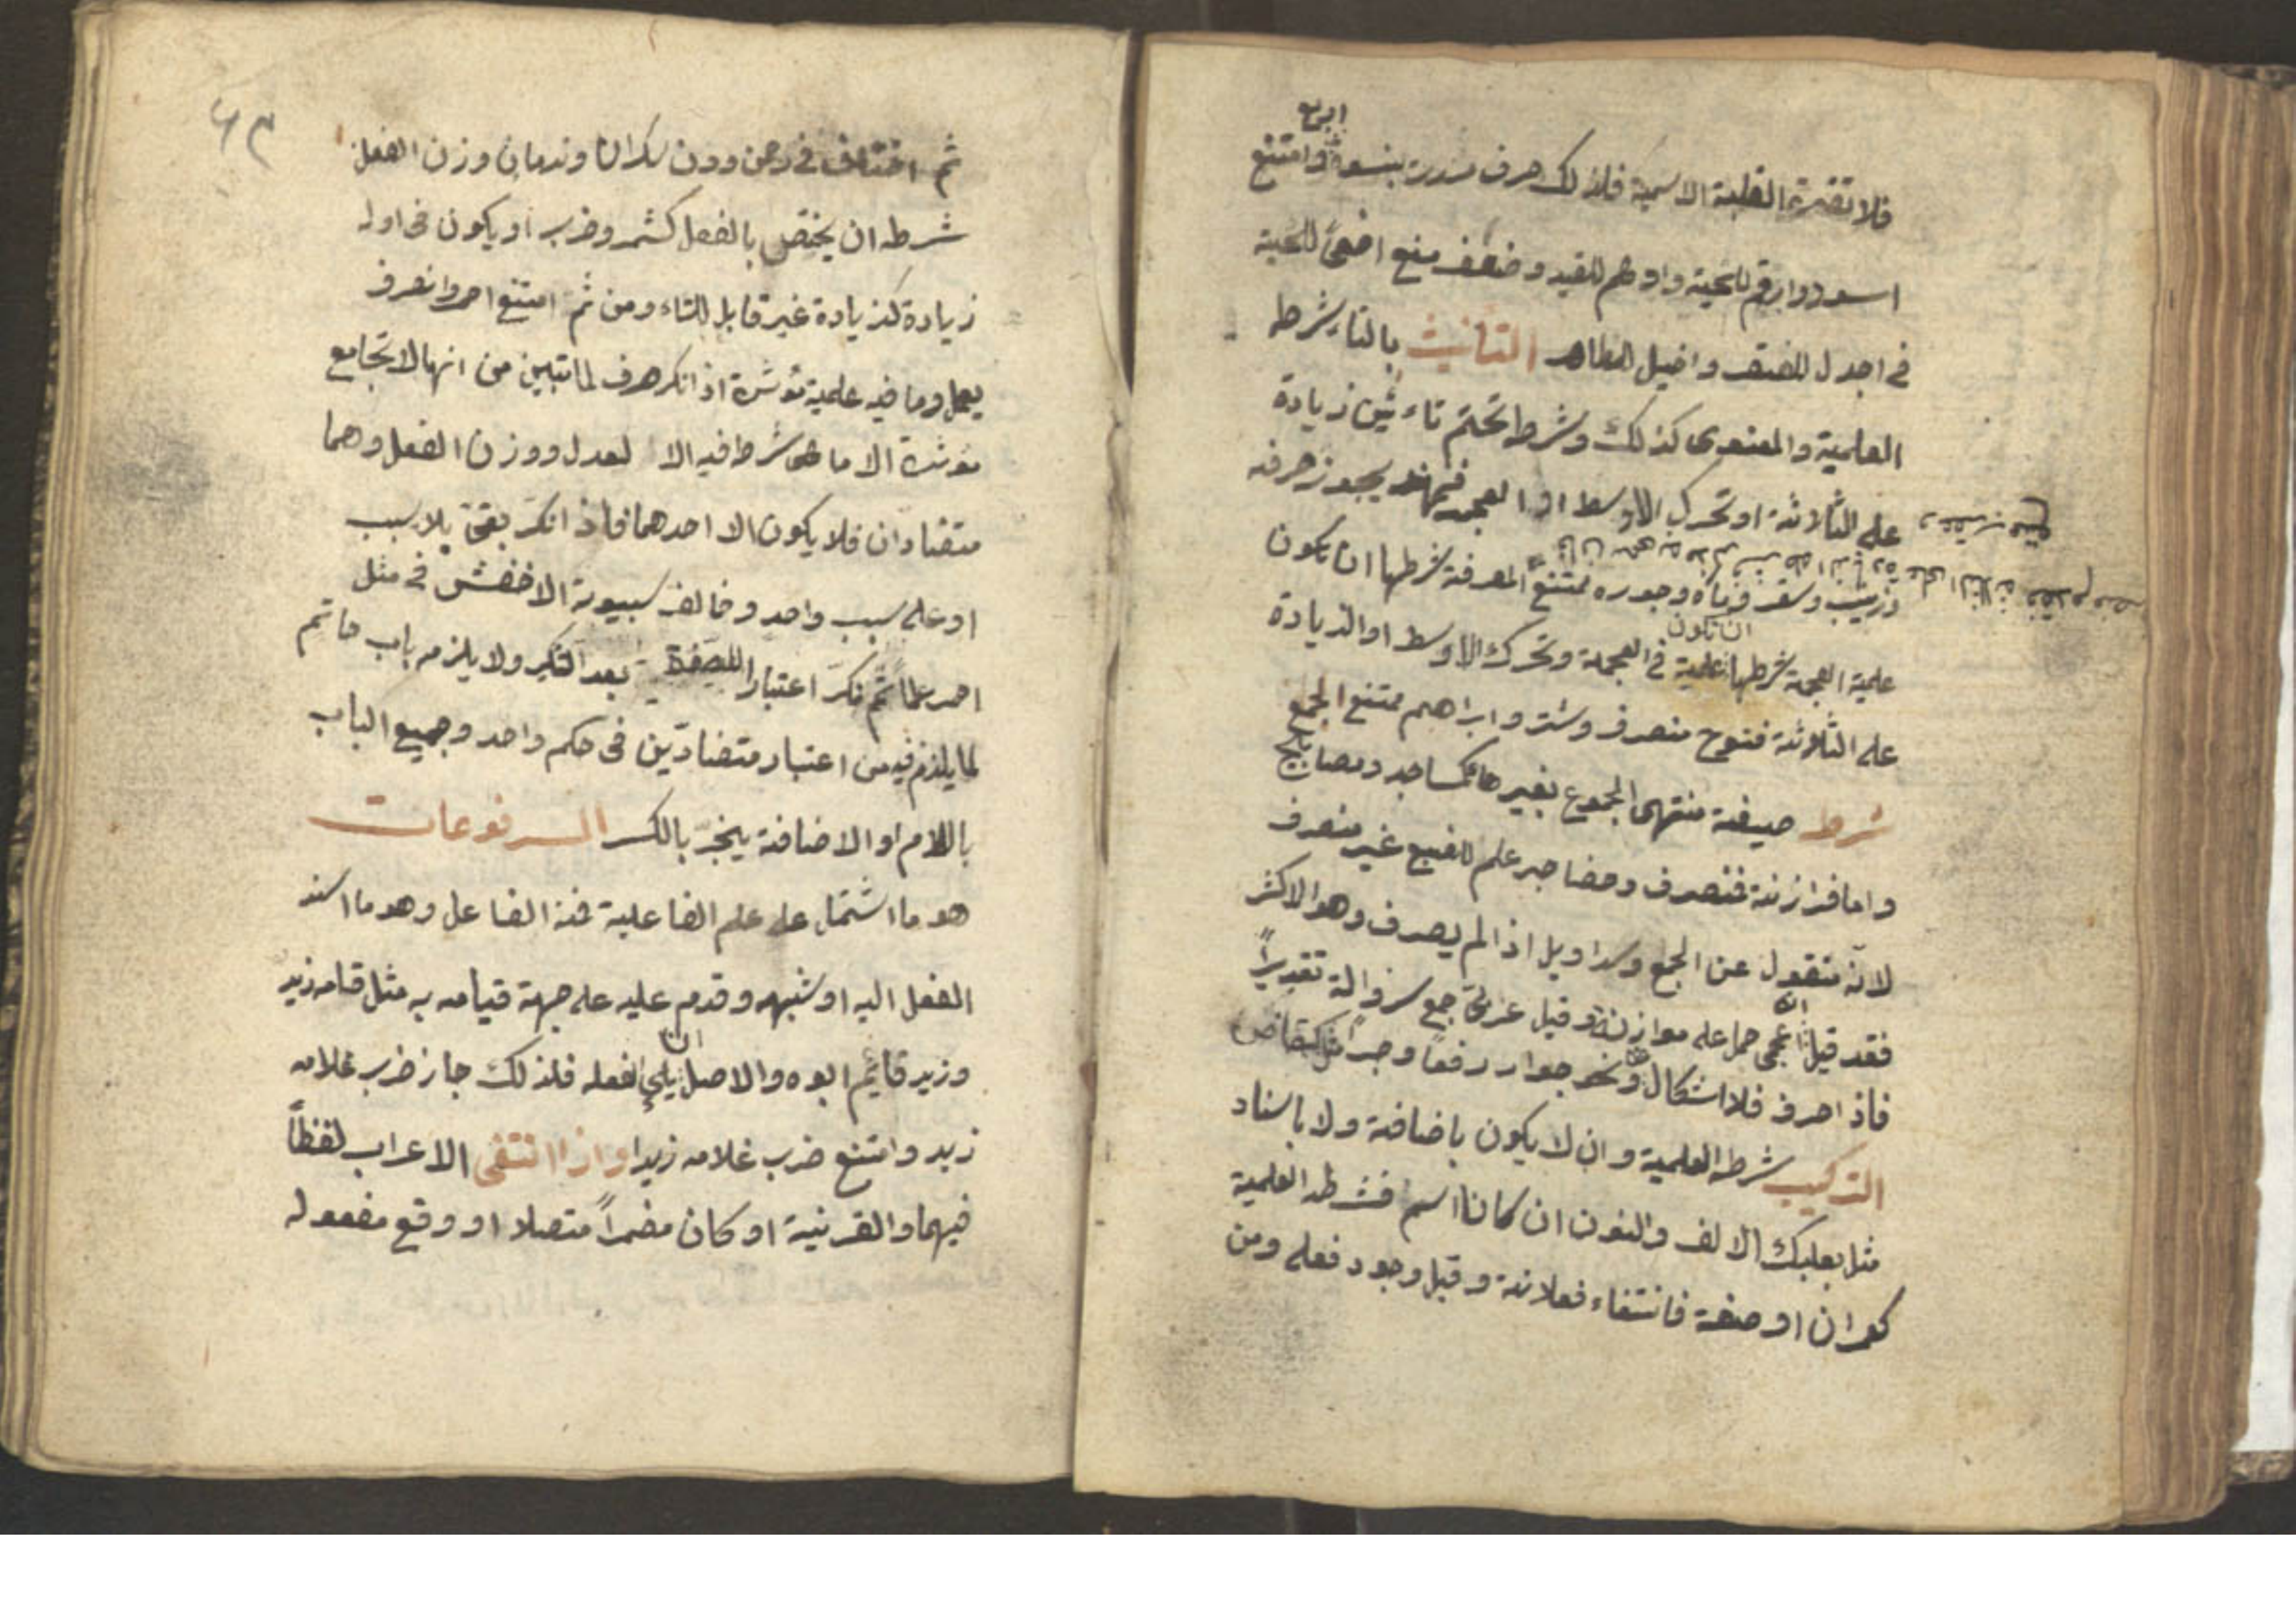 اربع
فلا تضره الغلبة الاسمية فلذلك صرف مررت بنسوة وامتنع
اسود وارقم للحية وادهم للقيد وضعف منع افعى للحية
فى اجدل للصقر واخيل للطاهر التأنيث بالتاء شرطه
العلمية والمعنوى كذلك وشرط تحتم تاءثيره زيادة
على الثلاثة او تحرك الاوسط او العجمة فهند يجوز صرفه
وزينب وسقر وماه وجور ممتنع المعرفة شرطها ان تكون
ان تكون
علمية العجمة شرطها علمية فى العجمة وتحرك الاوسط او الزيادة
على الثلاثة فنوح منصرف وشتر وابراهيم ممتنع الجمع
شرط صيغة منتهى الجموع بغير ها كمساجد ومصابيح
واما فرازنة فمنصرف وحضاجر علم للضبع غير منصرف
لانه منقول عن الجمع وسراويل اذا لم يصرف وهو الاكثر
انه
فقد قيل اعجمى حمل على موازنة وقيل عربى جمع سروالة تقديرا
فاذا صرف فلا اشكال ونحو جوار رفعا وجرا مثل كقاض
التركيب شرطه العلمية وان لا يكون باضافة ولا باسناد
مثل بعلبك الالف والنون ان كانا اسم فشرطه العلمية
كعمران او صفة فانتفاء فعلانة وقيل وجود فعلى ومن
٤٣
ثم اختلف فى رحمن دون سكران وندمان وزن الفعل
شرطه ان يختص بالفعل كشمر وضرب او يكون فى اوله
زيادة كزيادة غير قابل للتاء ومن ثم امتنع احمر وانصرف
يعمل وما فيه علمية مؤثرة اذا نكر صرف لما تبين من انها لا تجامع
مؤثرة الا ما هى شرط فيه الا لعدل ووزن الفعل وهما
متضادان فلا يكون الا احدهما فاذا نكر بقى بلا سبب
او على سبب واحد وخالف سيبوية الاخفش فى مثل
احمر علما ثم نكر اعتبارا للصفة بعد التنكير ولا يلزمه باب حاتم
لما يلزم فيه من اعتبار متضادين فى حكم واحد وجميع الباب
باللام او الاضافة ينجر بالكسر المرفوعات
هو ما اشتمل على علم الفاعلية فمنه الفاعل وهو ما اسند
الفعل اليه او شبهه وقدم عليه على جهة قيامه به مثل قام زيد
ان
وزيد قائم ابوه والاصل يلى لفعله فلذلك جاز ضرب غلامه
زيد وامتنع ضرب غلامه زيدا واذا انتفى الاعراب لفظا
فيهما والقرنية او كان مضمرا متصلا او وقع مفعوله